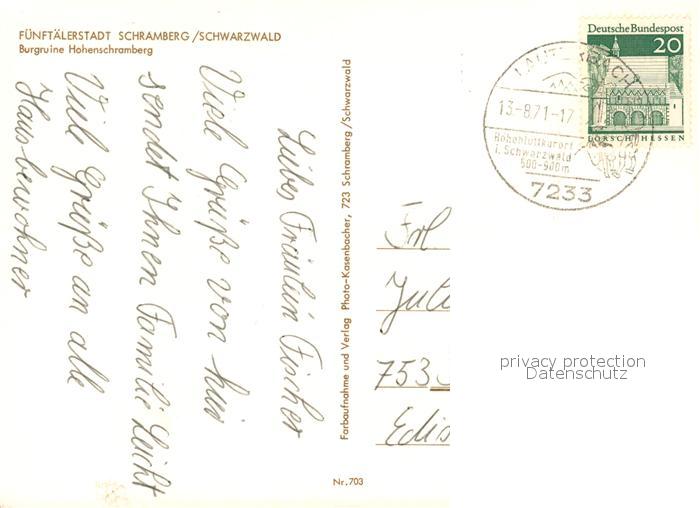 FÜNFTÄLERSTADT SCHRAMBERG/SCHWARZWALD
Burgruine Hohenschramberg
Liebes Fräulein Fischer
Viele Grüße von hier
sendet Ihnen Familie Leicht
Viele Grüße an alle
Hausbewohner
Farbaufnahme und Verlag Photo-Kasenbacher, 723 Schramberg/Schwarzwald
Nr. 703
Deutsche Bundespost
20
LORSCH/HESSEN
LAUTERBACH
13.-8.71-17
Höhenluftkurort
i. Schwarzwald
500-900m
7233
Frl
753
privacy protection
Datenschutz